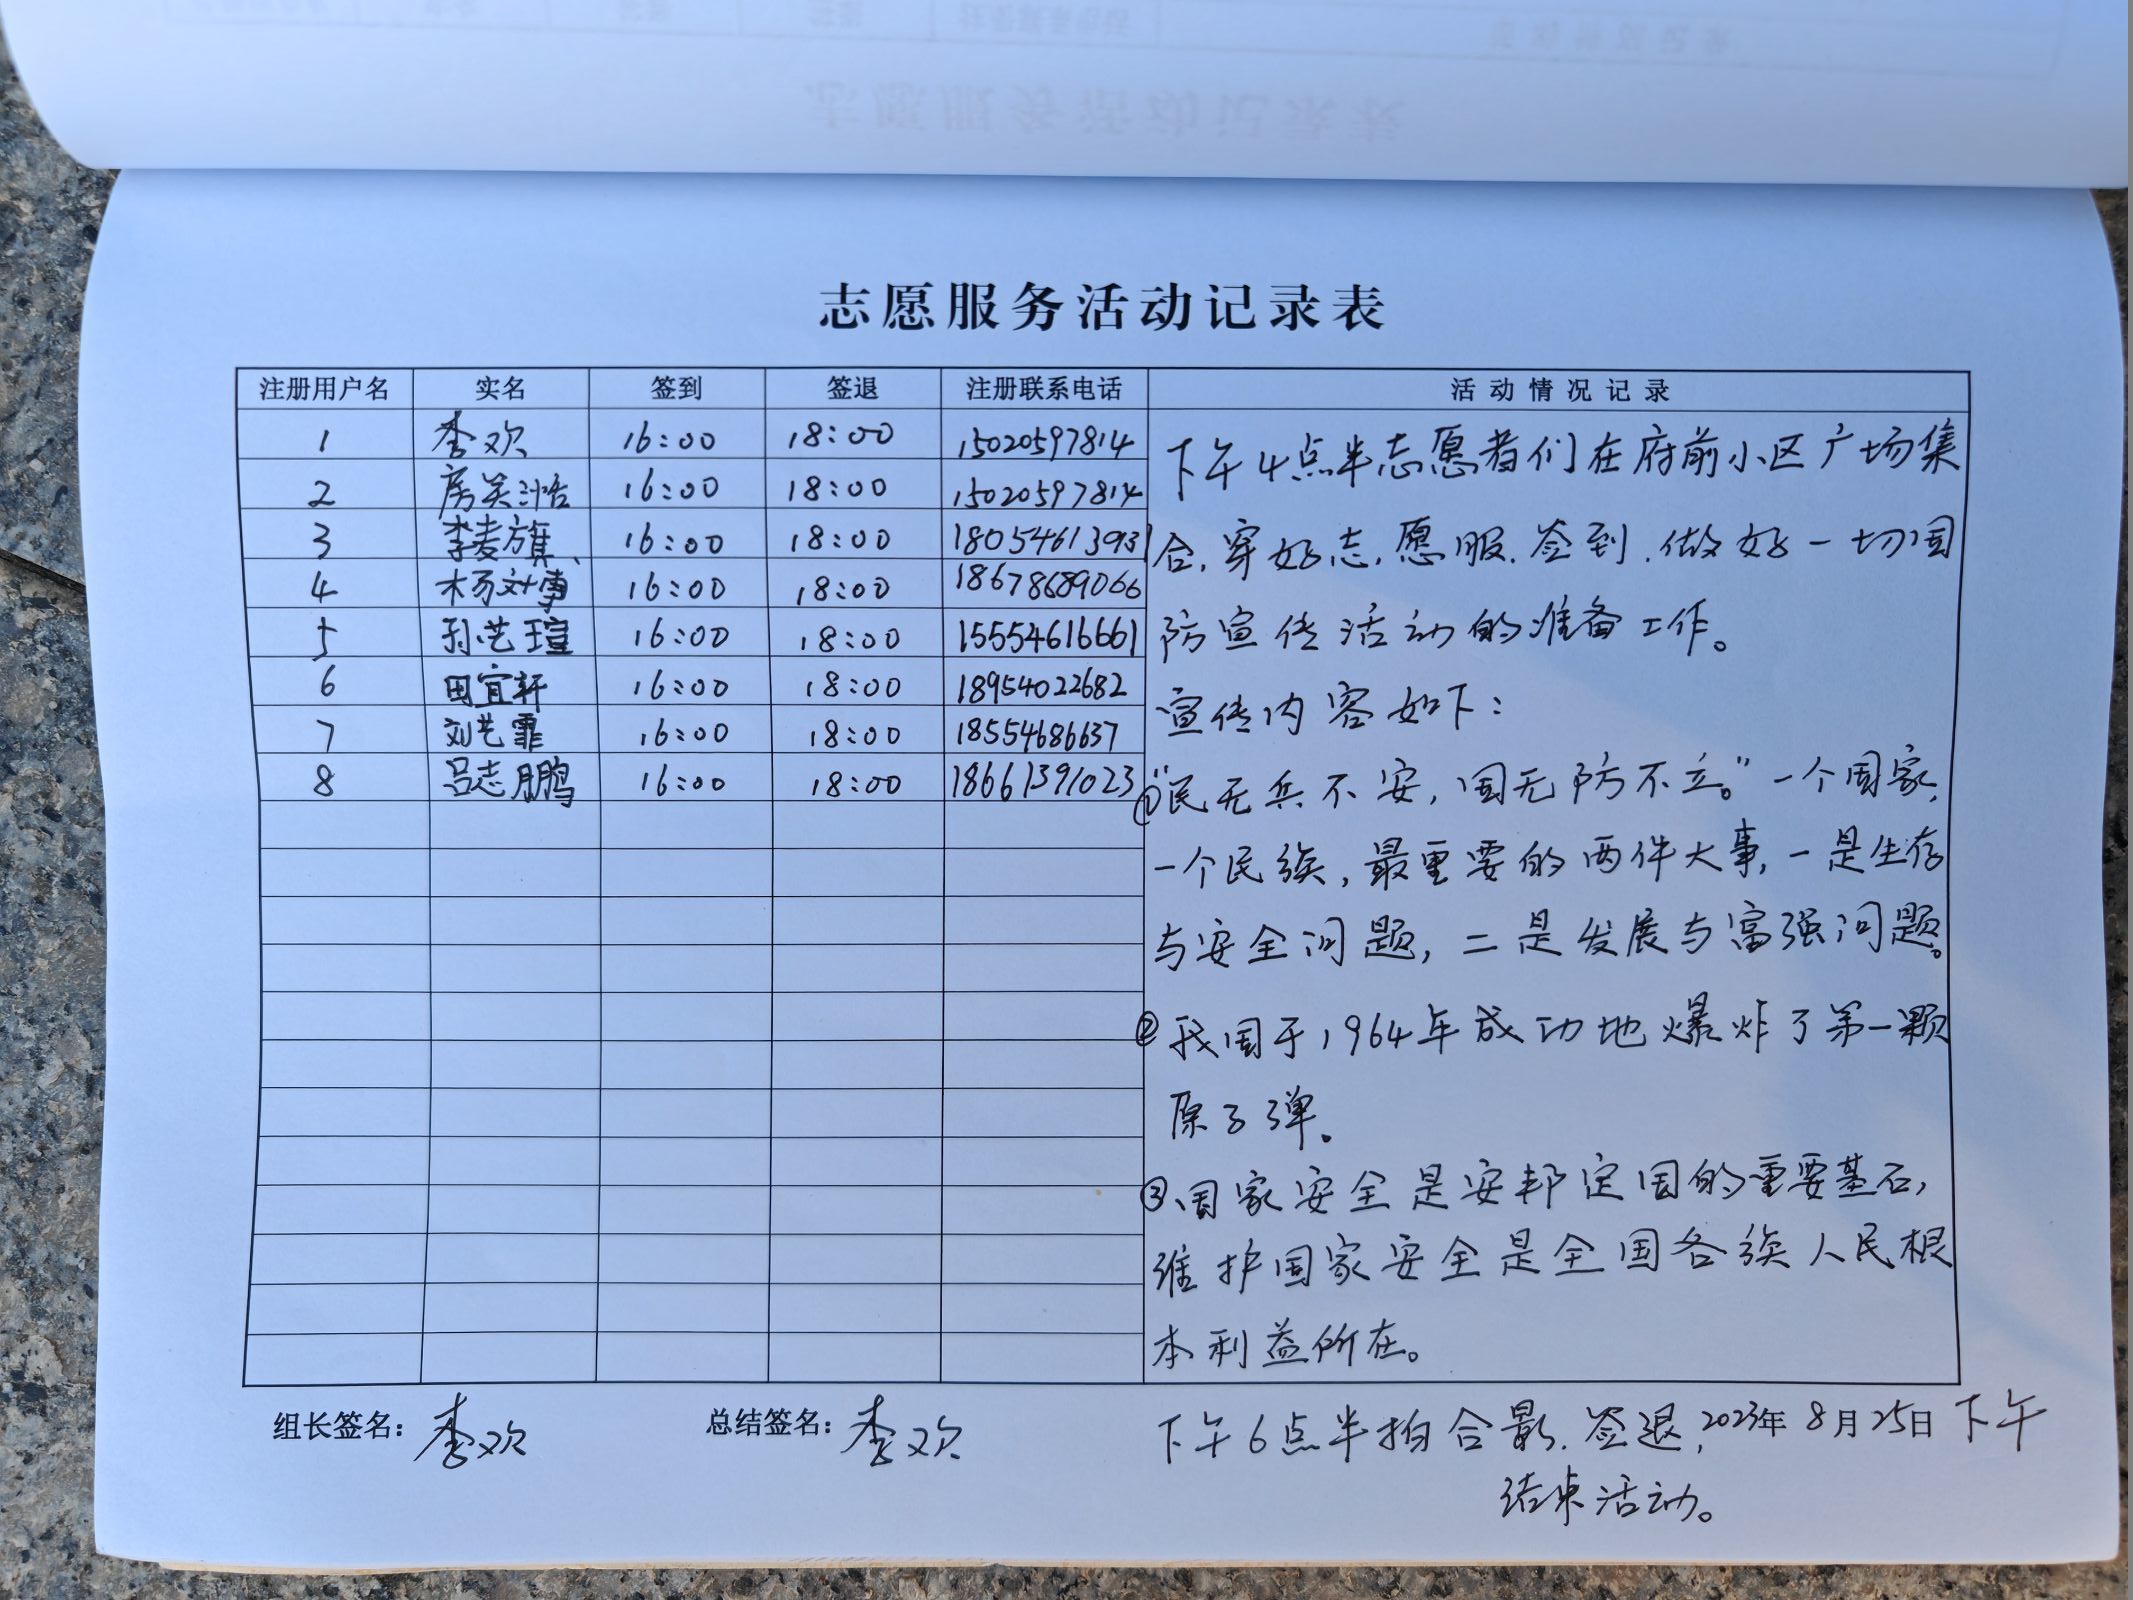 志愿服务活动记录表
注册用户名 实名 签到 签退 注册联系电话 活动情况记录
1 李欢 16:00 18:00 15020597814
2 房关浩 16:00 18:00 15020597814
3 李麦旗 16:00 18:00 18054613931
4 杨 16:00 18:00 18678689066
5 孙艺瑄 16:00 18:00 15554616661
6 田宜轩 16:00 18:00 18954022682
7 刘艺霏 16:00 18:00 18554686637
8 吕志鹏 16:00 18:00 18661391023
下午4点半志愿者们在府前小区广场集
合,穿好志愿服.签到.做好一切国
防宣传活动的准备工作。
宣传内容如下:
①“民无兵不安,国无防不立。”一个国家,
一个民族,最重要的两件大事,一是生存
与安全问题,二是发展与富强问题。
②我国于1964年成功地爆炸了第一颗
原子弹。
③国家安全是安邦定国的重要基石,
维护国家安全是全国各族人民根
本利益所在。
组长签名:李欢 总结签名:李欢 下午6点半拍合影.签退, 2023年8月25日下午
结束活动。